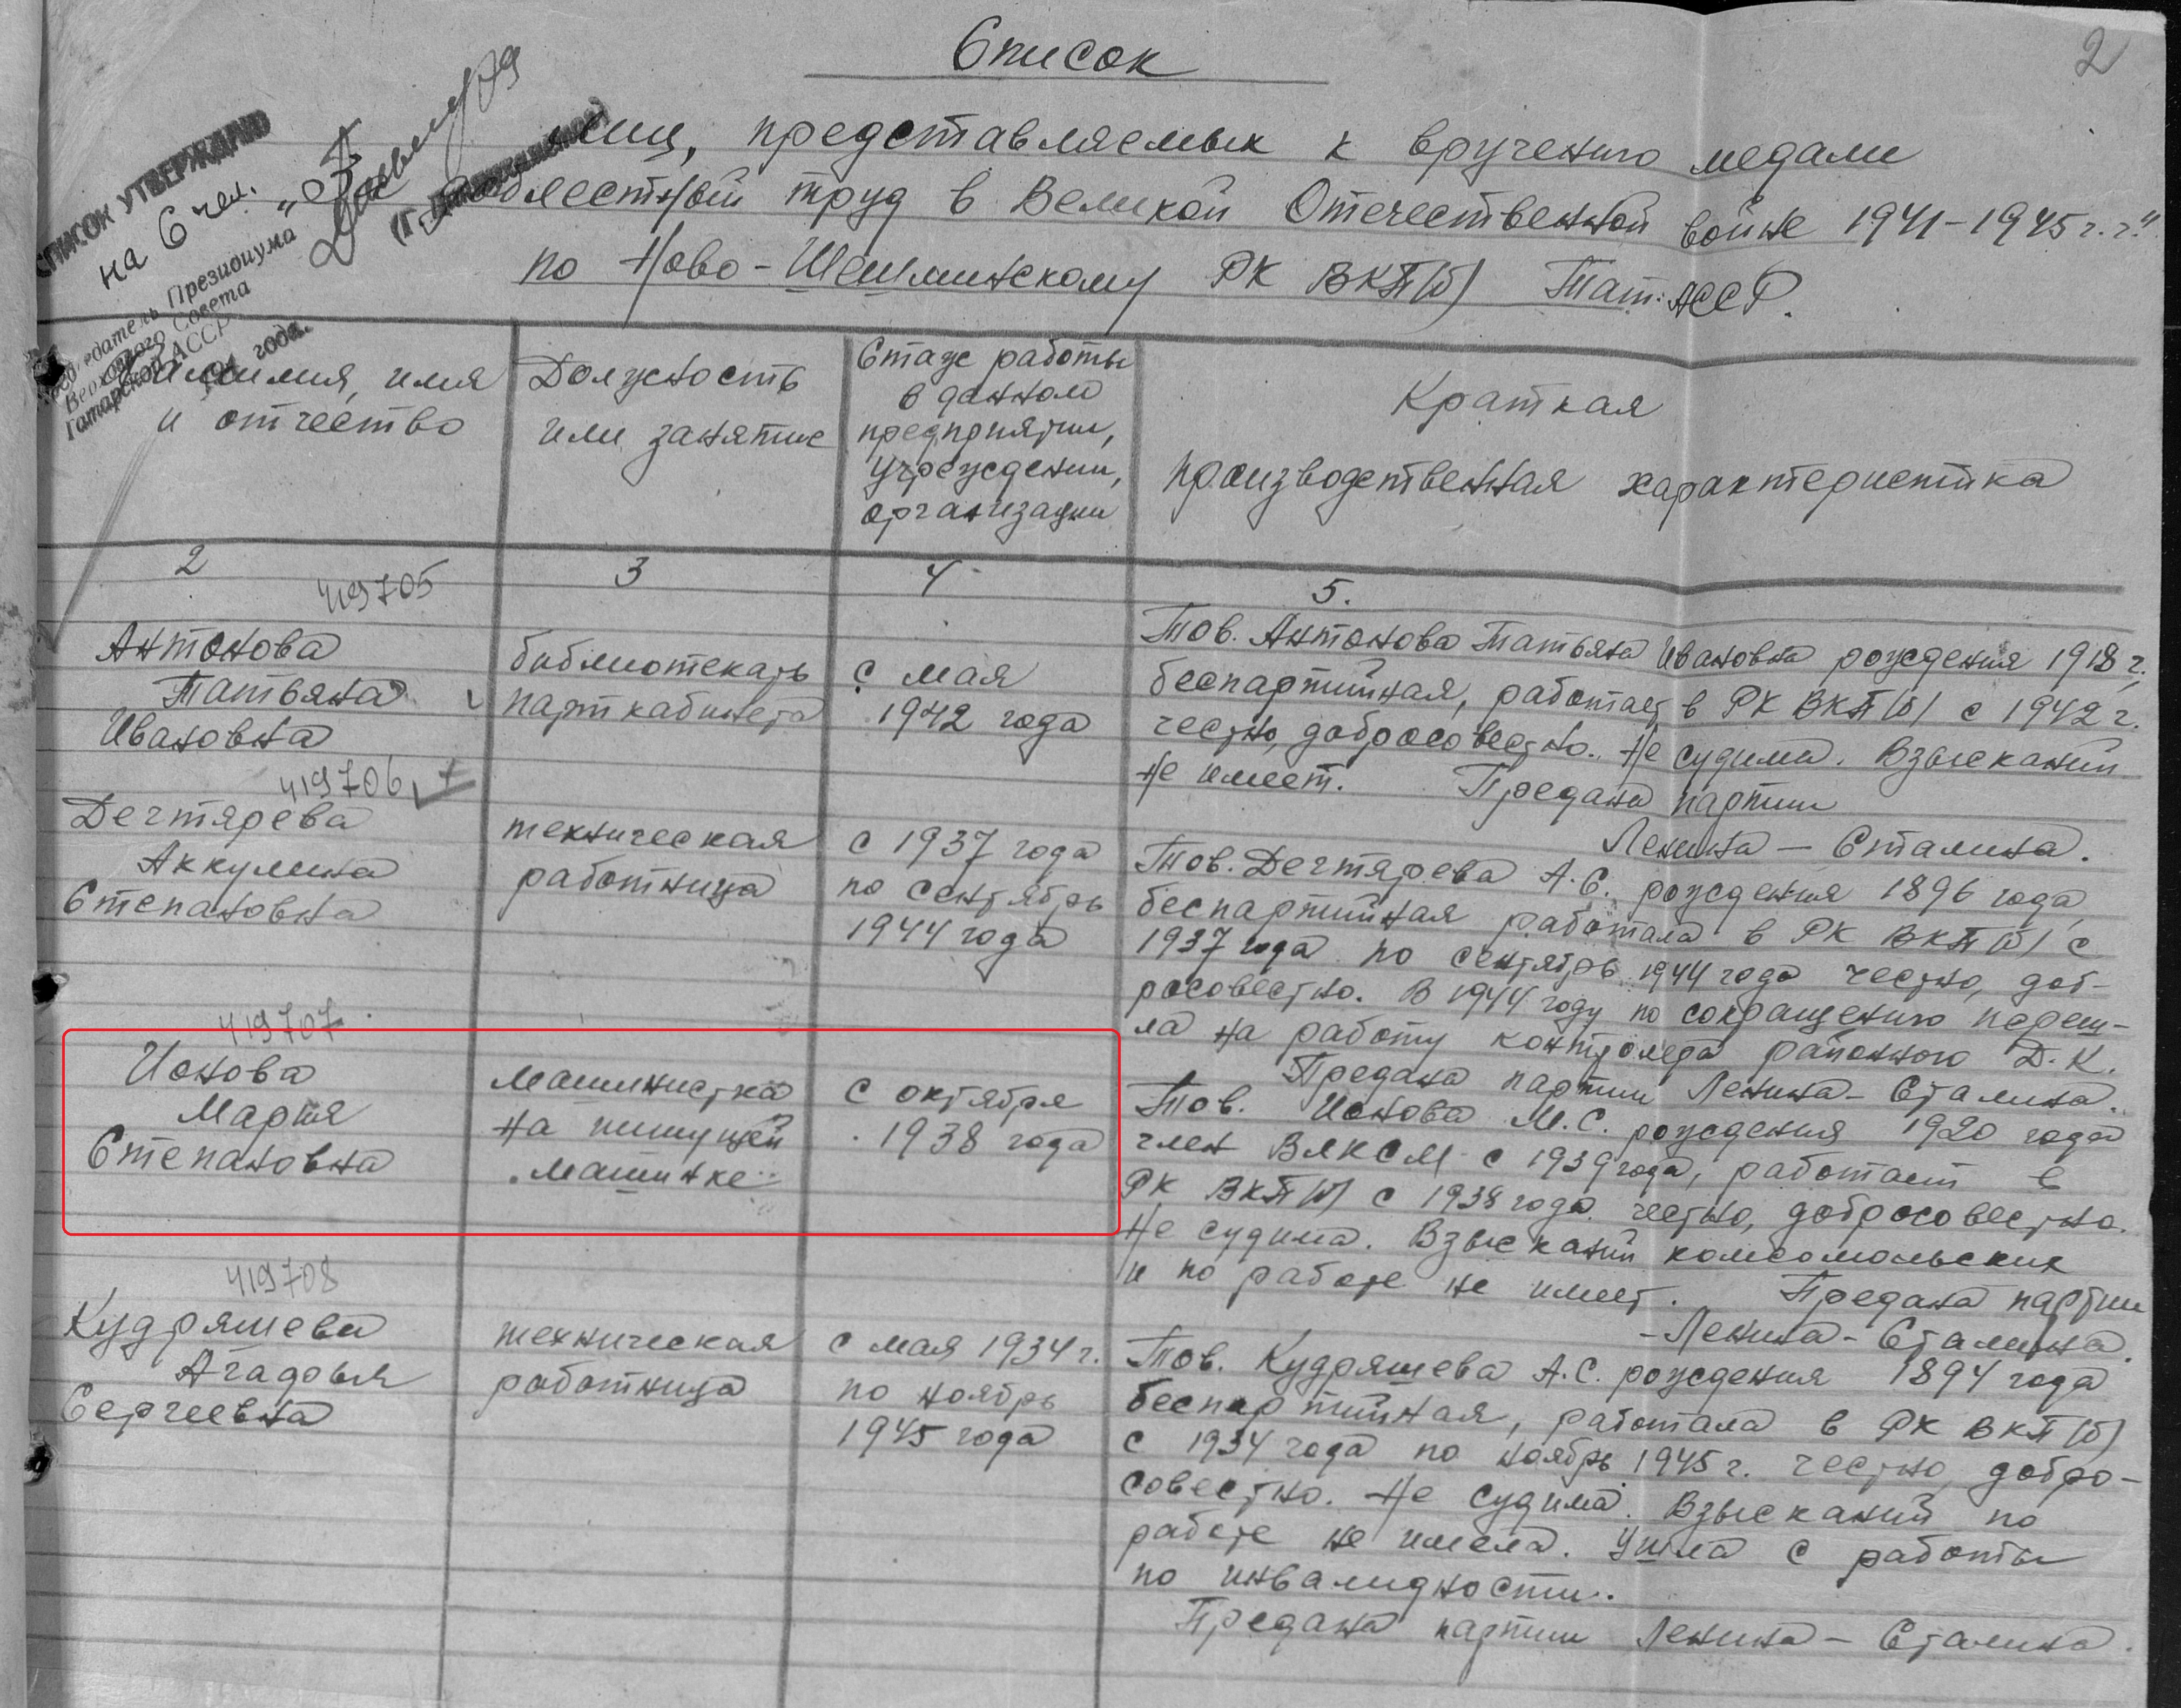 2
Список
лиц, представляемых к вручению медали
"За доблестный труд в Великой Отечественной войне 1941-1945 г.г."
по Ново-Шешминскому РК ВКП(б) Тат.АССР.
СПИСОК УТВЕРЖДАЮ
на 6 чел.
Председатель Президиума
Верховного Совета
Татарской АССР
года.
Фамилия, имя
и отчество
Должность
или занятие
Стаж работы
в данном
предприятии,
учреждении,
организации
Краткая
производственная характеристика
2
3
4
5.
419705
Антонова
Татьяна
Ивановна
библиотекарь
парткабинета
с мая
1942 года
Тов. Антонова Татьяна Ивановна рождения 1918 г.,
беспартийная, работает в РК ВКП(б) с 1942 г.
честно, добросовестно. Не судима. Взысканий
не имеет. Предана партии
Ленина - Сталина.
419706
Дегтярева
Аккулина
Степановна
техническая
работница
с 1937 года
по сентябрь
1944 года
Тов. Дегтярева А.С. рождения 1896 года,
беспартийная работала в РК ВКП(б) с
1937 года по сентябрь 1944 года честно, доб-
росовестно. В 1944 году по сокращению переш-
ла на работу контролера районного Д.К.
Предана партии Ленина - Сталина.
419707
Ионова
Мария
Степановна
Машинистка
на пишущей
машинке
с октября
1938 года
Тов. Ионова М.С. рождения 1920 года
член ВЛКСМ с 1939 года, работает в
РК ВКП(б) с 1938 года честно, добросовестно.
Не судима. Взысканий комсомольских
и по работе не имеет. Предана партии
- Ленина - Сталина.
419708
Кудряшева
Агадья
Сергеевна
техническая
работница
с мая 1934 г.
по ноябрь
1945 года
Тов. Кудряшева А.С. рождения 1894 года
беспартийная, работала в РК ВКП(б)
с 1934 года по ноябрь 1945 г. честно, добро-
совестно. Не судима. Взысканий по
работе не имела. Ушла с работы
по инвалидности.
Предана партии Ленина - Сталина.